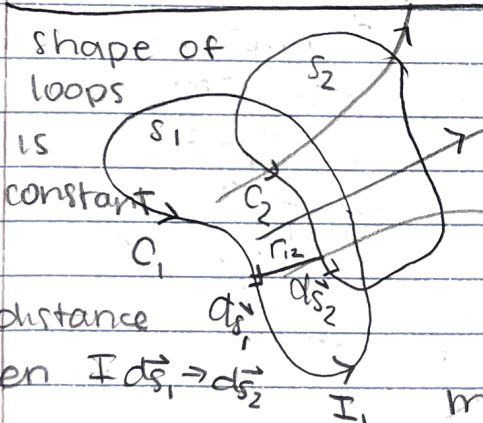 shape of
loops
is
constant
S₁
S₂
C₁
C₂
r₁₂
ds⃗₁
ds⃗₂
distance
en I ds⃗₁ → ds⃗₂
I₁